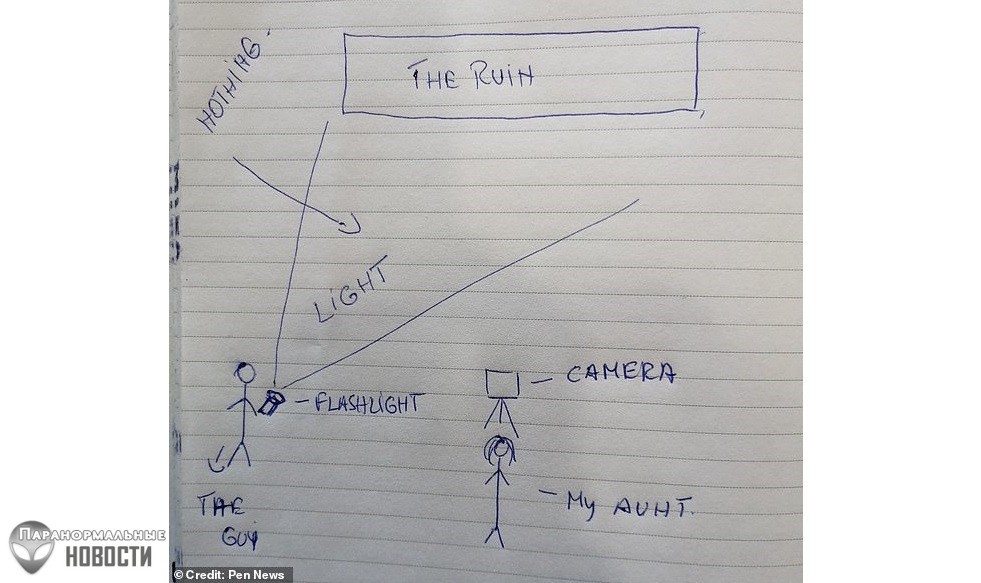 NOTHING
THE RUIN
LIGHT
FLASHLIGHT
CAMERA
THE
GUY
My AUNT.
Паранормальные
НОВОСТИ
Credit: Pen News